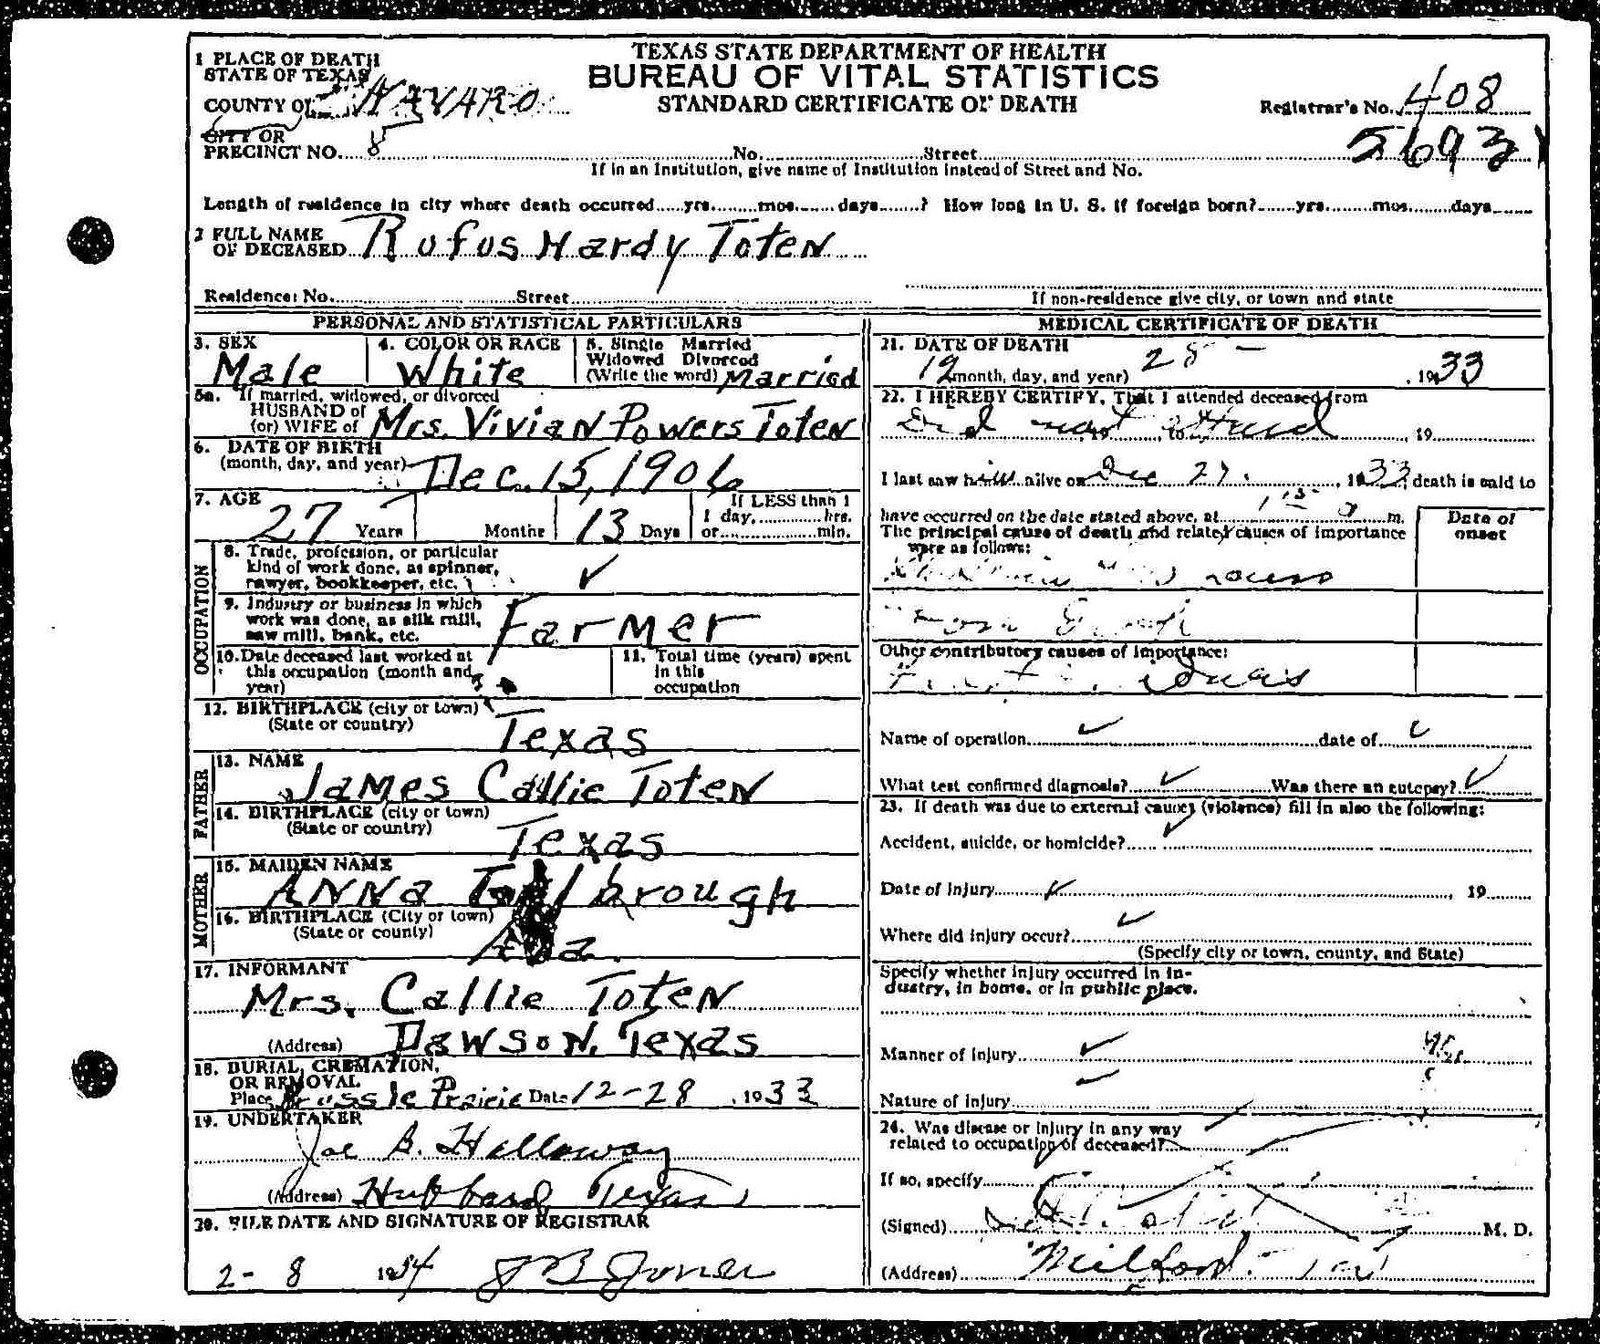 TEXAS STATE DEPARTMENT OF HEALTH
BUREAU OF VITAL STATISTICS
STANDARD CERTIFICATE OF DEATH
1 PLACE OF DEATH
STATE OF TEXAS
COUNTY OF NAVARO
Registrar's No. 408
CITY OR
PRECINCT NO. 8 No. Street
5693
If in an Institution, give name of Institution instead of Street and No.
Length of residence in city where death occurred yrs. mos. days ? How long in U. S. if foreign born? yrs. mos. days
2 FULL NAME
OF DECEASED Rufus Hardy Toten
Residence: No. Street
If non-residence give city, or town and state
PERSONAL AND STATISTICAL PARTICULARS
3. SEX
Male
4. COLOR OR RACE
White
5. Single Married
Widowed Divorced
(Write the word) Married
5a. If married, widowed, or divorced
HUSBAND of
(or) WIFE of Mrs. Vivian Powers Toten
6. DATE OF BIRTH
(month, day, and year) Dec. 15, 1906
7. AGE
27 Years Months 13 Days
If LESS than 1
1 day, hrs.
or min.
OCCUPATION
8. Trade, profession, or particular
kind of work done, as spinner,
sawyer, bookkeeper, etc.
9. Industry or business in which
work was done, as silk mill,
saw mill, bank, etc.
Farmer
10. Date deceased last worked at
this occupation (month and
year)
11. Total time (years) spent
in this
occupation
12. BIRTHPLACE (city or town)
(State or country)
Texas
FATHER
13. NAME
James Callie Toten
14. BIRTHPLACE (city or town)
(State or country)
Texas
MOTHER
15. MAIDEN NAME
Anna
16. BIRTHPLACE (City or town)
(State or county)
17. INFORMANT
Mrs. Callie Toten
(Address) Dawson, Texas
18. BURIAL, CREMATION,
OR REMOVAL
Place Prairie Date 12-28, 1933
19. UNDERTAKER
Joe B. Holloway
(Address) Hubbard, Texas
20. FILE DATE AND SIGNATURE OF REGISTRAR
2-8 1934 J B Jones
MEDICAL CERTIFICATE OF DEATH
21. DATE OF DEATH
12 28 -
(month, day, and year) , 1933
22. I HEREBY CERTIFY, That I attended deceased from
Did not attend , 19
I last saw him alive on Dec 27. , 1933, death is said to
have occurred on the date stated above, at m.
The principal cause of death and related causes of importance
were as follows:
Date of
onset
Other contributory causes of importance:
Name of operation date of
What test confirmed diagnosis? Was there an autopsy?
23. If death was due to external causes (violence) fill in also the following:
Accident, suicide, or homicide?
Date of injury , 19
Where did injury occur?
(Specify city or town, county, and State)
Specify whether injury occurred in in-
dustry, in home, or in public place.
Manner of injury
Nature of injury
24. Was disease or injury in any way
related to occupation of deceased?
If so, specify
(Signed) M. D.
(Address) Milford